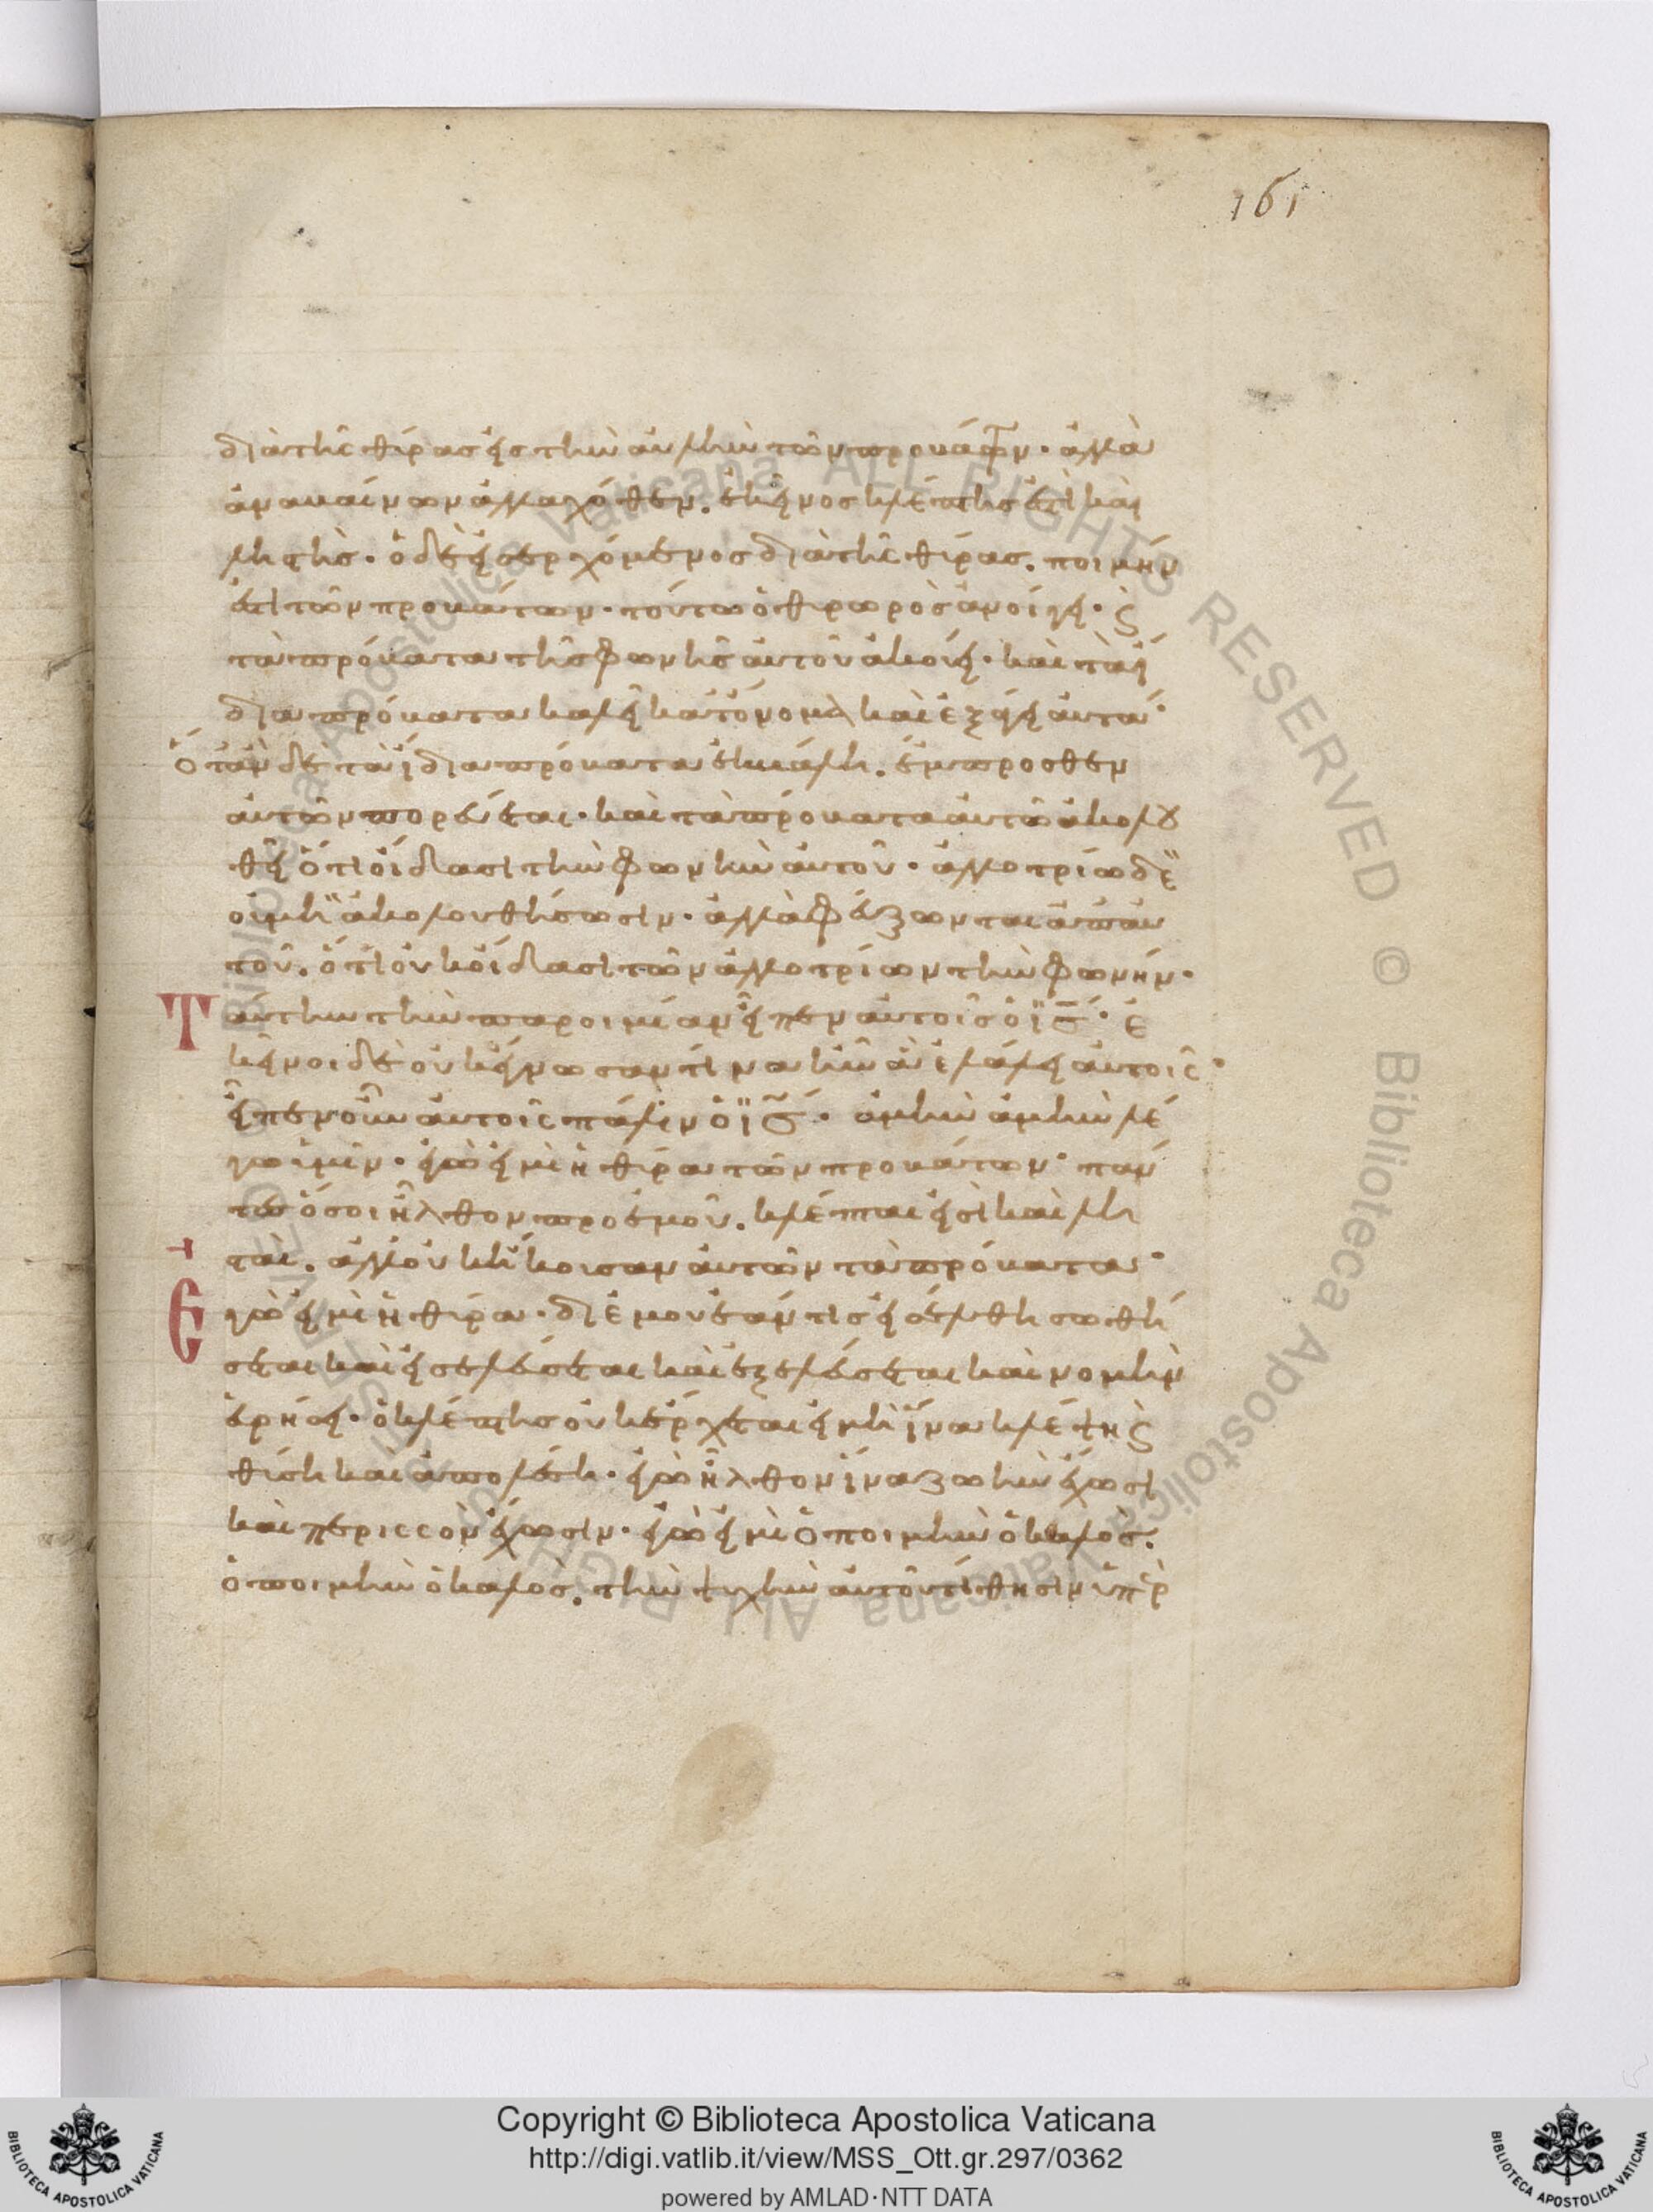 161
διὰ τῆς θύρας εἰς τὴν αὐλὴν τῶν προβάτων· ἀλλὰ
ἀναβαίνων ἀλλαχόθεν. ἐκεῖνος κλέπτης ἐστὶ καὶ
ληστής· ὁ δὲ εἰσερχόμενος διὰ τῆς θύρας. ποιμήν
ἐστι τῶν προβάτων· τούτω ὁ θυρωρὸς ἀνοίγει· ϛ
τὰ πρόβατα τῆς φωνῆς αὐτοῦ ἀκούει· καὶ τὰ ἴ
δια πρόβατα καλεῖ κατόνομα καὶ ἐξάγει αὐτά·
Ὅταν δὲ τὰ ἴδια πρόβατα ἐκβάλη. ἔμπροσθεν
αὐτῶν πορεύεται· καὶ τὰ πρόβατα αὐτῶ ἀκολου
θεῖ ὅτι οἴδασι τὴν φωνὴν αὐτοῦ· ἀλλοτρίω δὲ
οὐ μὴ ἀκολουθήσωσιν· ἀλλὰ φεύξωνται ἀπαυ
τοῦ. ὅτι οὐκ οἴδασι τῶν ἀλλοτρίων τὴν φωνήν·
Ταύτην τὴν παροιμίαν εἶπεν αὐτοῖς ὁ ϊς· ἐ
κεῖνοι δὲ οὐκ ἔγνωσαν τί ἦν ἃ ἐλάλει αὐτοῖς·
εἶπεν οὖν αὐτοῖς πάλιν ὁ ϊς· ἀμὴν ἀμὴν λέ
γω ὑμῖν· ἐγώ εἰμι ἡ θύρα τῶν προβάτων· πάν
τες ὅσοι ἦλθον πρὸ ἐμοῦ. κλέπται εἰσὶ καὶ λη
σταί. ἀλλ' οὐκ ἤκουσαν αὐτῶν τὰ πρόβατα·
Ἐγώ εἰμι ἡ θύρα· δι' ἐμοῦ ἐάν τις εἰσέλθη σωθή
σεται καὶ εἰσελεύσεται καὶ ἐξελεύσεται καὶ νομὴν
εὑρήσει· ὁ κλέπτης οὐκ ἔρχεται εἰ μὴ ἵνα κλέψη ϛ
θύση καὶ ἀπολέση· ἐγὼ ἦλθον ἵνα ζωὴν ἔχωσι
καὶ περισσὸν ἔχωσιν· ἐγώ εἰμι ὁ ποιμὴν ὁ καλός.
ὁ ποιμὴν ὁ καλὸς. τὴν ψυχὴν αὐτοῦ τίθησιν ὑπὲρ
Copyright © Biblioteca Apostolica Vaticana
http://digi.vatlib.it/view/MSS_Ott.gr.297/0362
powered by AMLAD·NTT DATA
BIBLIOTECA APOSTOLICA VATICANA
BIBLIOTECA APOSTOLICA VATICANA